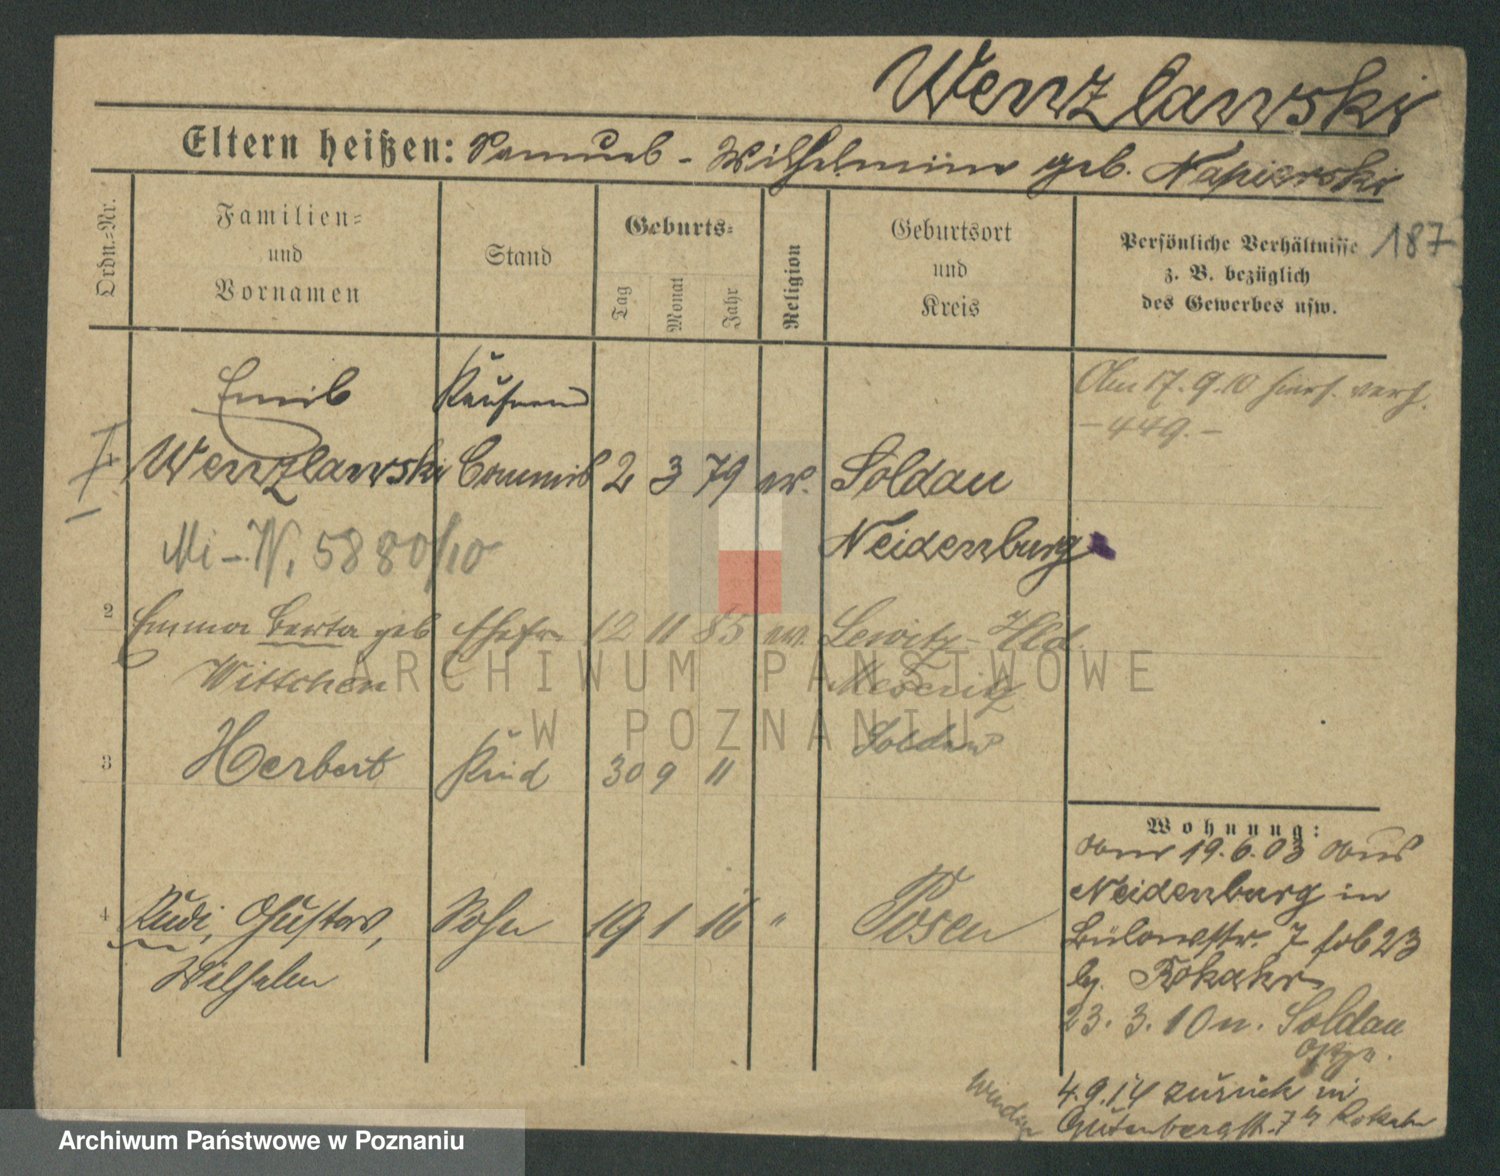 Wenzlawski
Eltern heißen: Samuel - Wilhelmine geb. Napierski
187
Ordn.=Nr.
Familien=
und
Vornamen
Stand
Geburts=
Tag
Monat
Jahr
Religion
Geburtsort
und
Kreis
Persönliche Verhältnisse
z. B. bezüglich
des Gewerbes usw.
Emil Kaufmann
1 Wenzlawski Commis 2 3 79 ev. Soldau
Neidenburg
Am 17.9.10 hiers. verh.
-449.-
Mi-N. 5880/10
2 Emma Berta geb Ehefr. 12 11 85 ev. Lewitz-Hld.
Wittchen Meseritz
3 Herbert Kind 30 9 11 Soldau
4 Rudi, Gustav, Sohn 19 1 16 " Posen
Wilhelm
Wohnung:
vom 19.6.03 aus
Neidenburg in
Bülowstr. 7
by. Kokahr
23.3.10 n. Soldau
Ostpr.
4.9.14 zurück in
Gutenbergstr. 7
ARCHIWUM PAŃSTWOWE
W POZNANIU
Archiwum Państwowe w Poznaniu